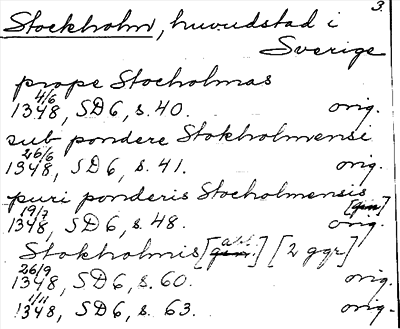 3
Stockholm, huvudstad i
Sverige
prope Stocholmas
4/6
1348, SD 6, s. 40. orig.
sub pondere Stokholmensi
26/6
1348, SD 6, s. 41. orig.
puri ponderis Stocholmensis
[gen]
19/7
1348, SD 6, s. 48. orig.
Stokholmis [abl.] [2 ggr]
26/9
1348, SD 6, s. 60. orig.
1/11
1348, SD 6, s. 63. orig.